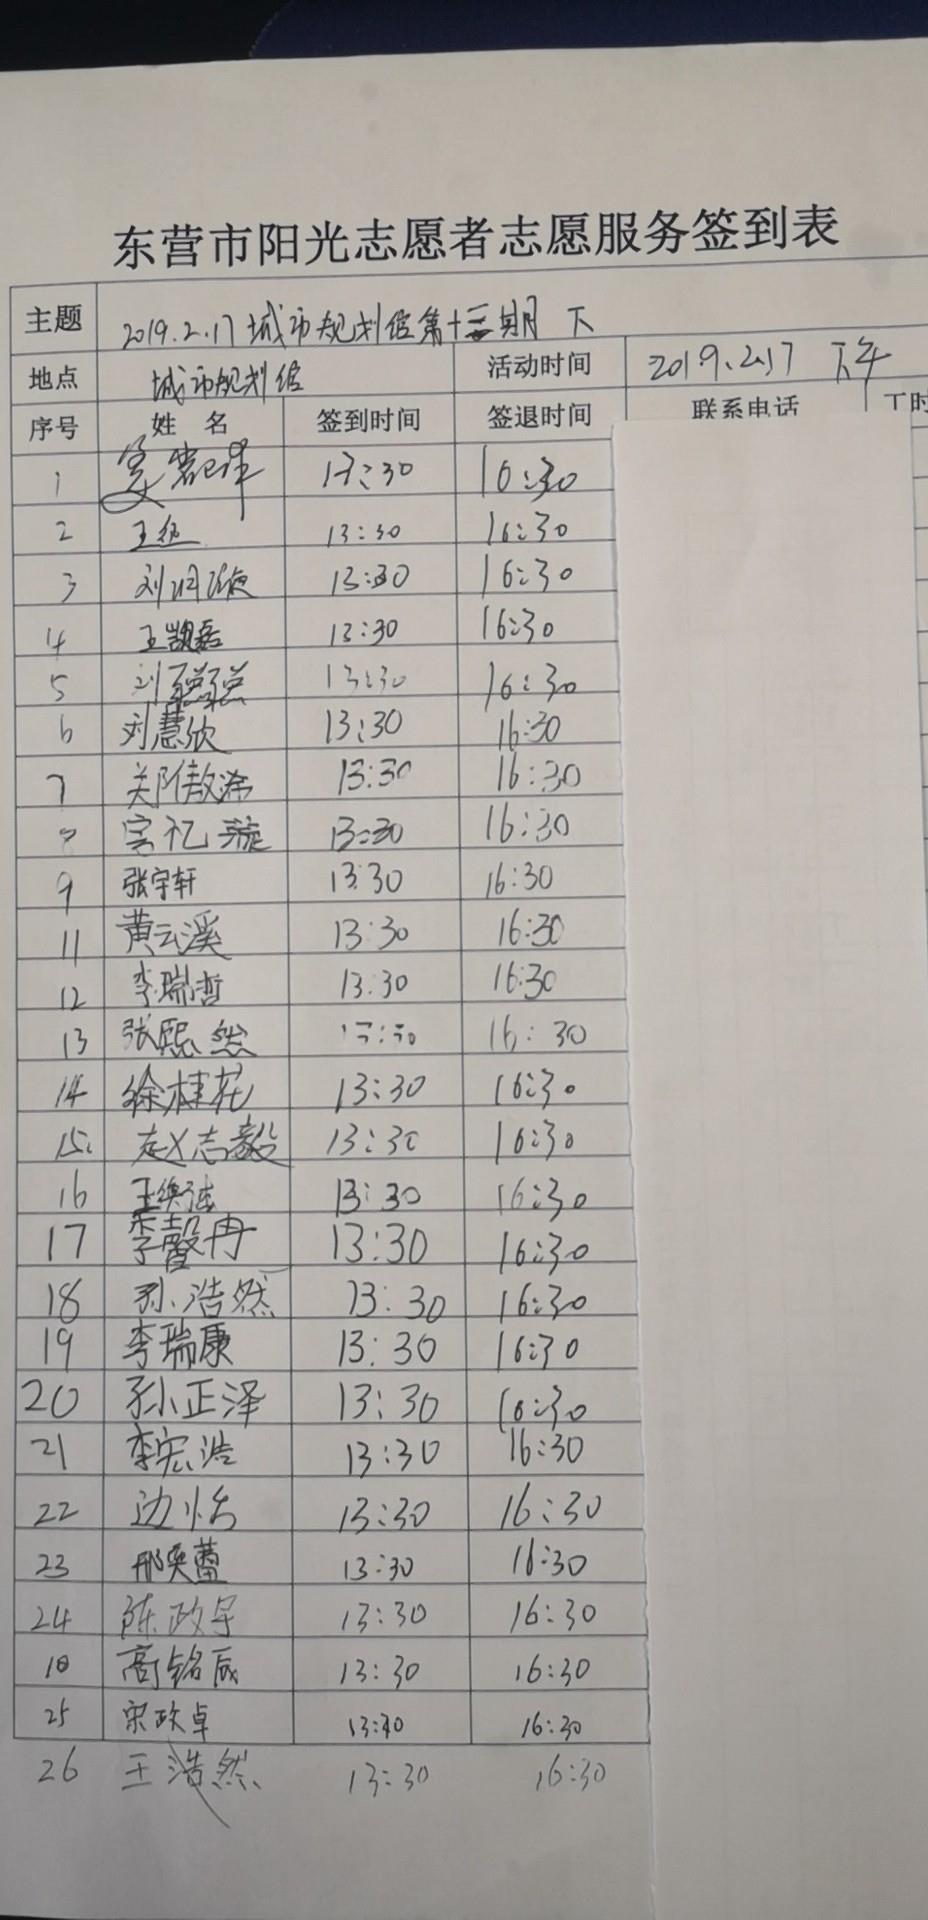 东营市阳光志愿者志愿服务签到表
主题 2019.2.17 城市规划馆第十三期 下
地点 城市规划馆 活动时间 2019.2.17 下午
序号 姓 名 签到时间 签退时间 联系电话
1 13:30 16:30
2 13:30 16:30
3 13:30 16:30
4 13:30 16:30
5 刘聪聪 13:30 16:30
6 刘慧欣 13:30 16:30
7 13:30 16:30
8 13:30 16:30
9 张宇轩 13:30 16:30
11 黄云溪 13:30 16:30
12 李瑞哲 13:30 16:30
13 张熙然 13:30 16:30
14 徐桂花 13:30 16:30
15. 赵志毅 13:30 16:30
16 13:30 16:30
17 李馨冉 13:30 16:30
18 孙浩然 13:30 16:30
19 李瑞康 13:30 16:30
20 孙正泽 13:30 16:30
21 李宏浩 13:30 16:30
22 边怡 13:30 16:30
23 邢奕蕾 13:30 16:30
24 陈政宇 13:30 16:30
10 高铭辰 13:30 16:30
25 宋政卓 13:30 16:30
26 王浩然 13:30 16:30